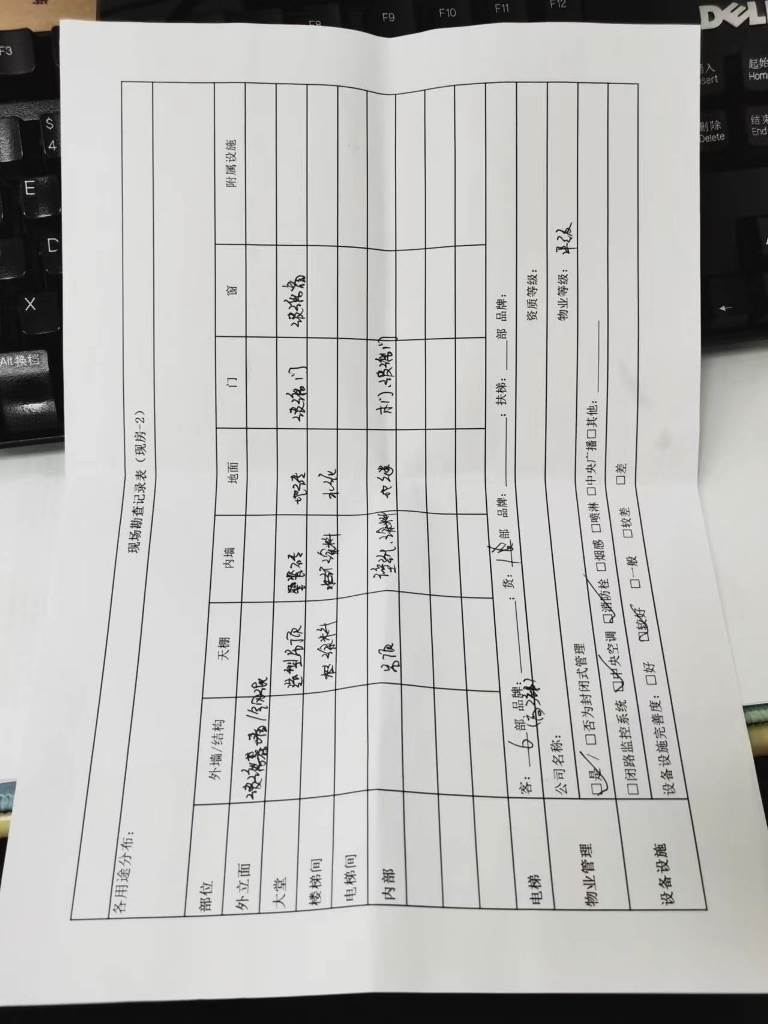 现场勘查记录表（现房-2）
各用途分布：
部位 外墙/结构 天棚 内墙 地面 门 窗 附属设施
外立面 玻璃幕墙/钢混
大堂 造型吊顶 地砖 玻璃门 玻璃窗
楼梯间 涂料 涂料 水泥
电梯间
内部 吊顶 涂料 木门、玻璃门
电梯 客： 6 部 品牌： ；货： 1 部 品牌： ；扶梯： 部 品牌：
物业管理 公司名称： 资质等级：
☑是/□否为封闭式管理 物业等级：
设备设施 □闭路监控系统 ☑中央空调 ☑消防栓 □烟感 □喷淋 □中央广播 □其他：
设备设施完善度： □好 ☑较好 □一般 □较差 □差
F3
$
4
E
D
X
Alt 换档
F8
F9
F10
F11
F12
DELL
插入
Insert
起始
Home
删除
Delete
结束
End